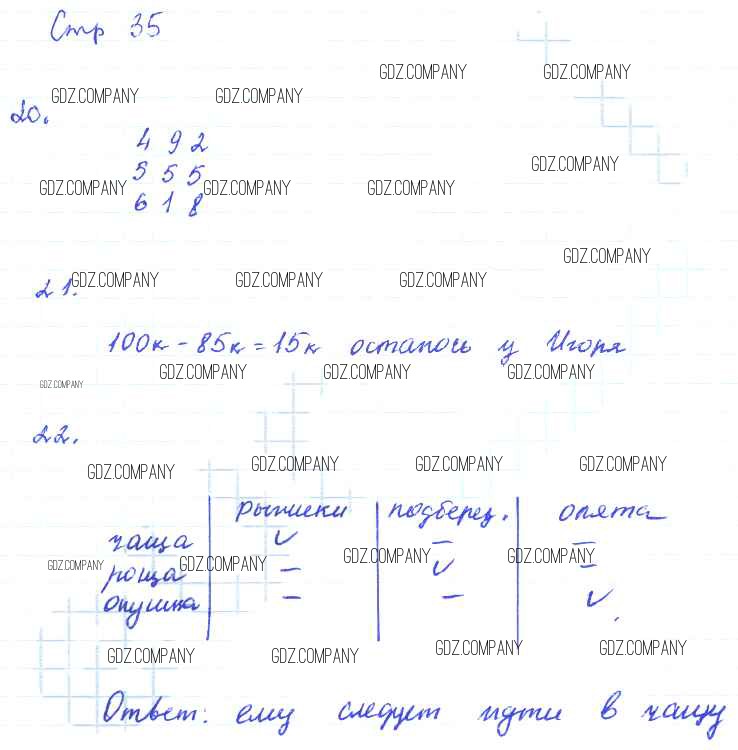 Стр 35
GDZ.COMPANY GDZ.COMPANY
GDZ.COMPANY GDZ.COMPANY
20.
4 9 2
GDZ.COMPANY
5 5 5
GDZ.COMPANY GDZ.COMPANY GDZ.COMPANY
6 1 8
GDZ.COMPANY
21. GDZ.COMPANY GDZ.COMPANY GDZ.COMPANY
100к - 85к = 15к осталось у Игоря
GDZ.COMPANY GDZ.COMPANY GDZ.COMPANY GDZ.COMPANY
22.
GDZ.COMPANY GDZ.COMPANY GDZ.COMPANY GDZ.COMPANY
рыжики подберез. опята
чаща ✓ – –
GDZ.COMPANY GDZ.COMPANY GDZ.COMPANY GDZ.COMPANY
роща – ✓ –
опушка – – ✓
GDZ.COMPANY GDZ.COMPANY GDZ.COMPANY GDZ.COMPANY
Ответ: ему следует идти в чащу